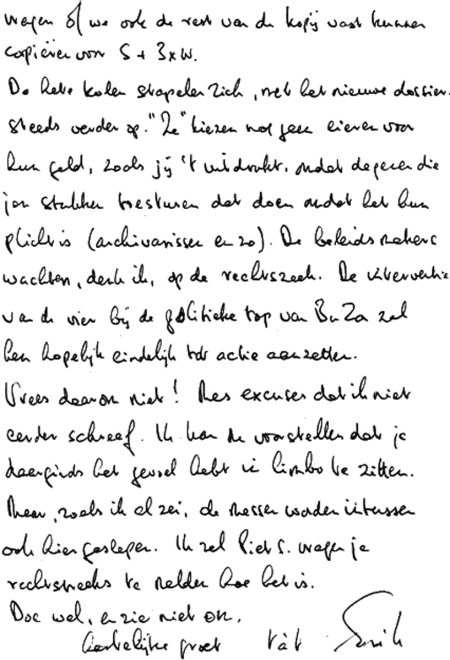 vragen of we ook de rest van de kopij vast kunnen
copiëren voor S + 3xW.
De hete kolen stapelen zich, met het nieuwe dossier,
steeds verder op. "Ze" kiezen nog geen eieren voor
hun geld, zoals jij 't uitdrukt, omdat degenen die
jou stukken toesturen dat doen omdat het hun
plicht is (archivarissen en zo). De beleidsmakers
wachten, denk ik, op de rechtszaak. De interventie
van de vier bij de politieke top van BuZa zal
hen hopelijk eindelijk tot actie aanzetten.
Vrees daarom niet! Mes excuses dat ik niet
eerder schreef. Ik kan me voorstellen dat je
daarginds het gevoel hebt in limbo te zitten.
Maar, zoals ik al zei, de messen worden intussen
ook hier geslepen. Ik zal Piet S. vragen je
rechtstreeks te melden hoe het is.
Doe wel, en zie niet om,
Hartelijke groet t.à t.